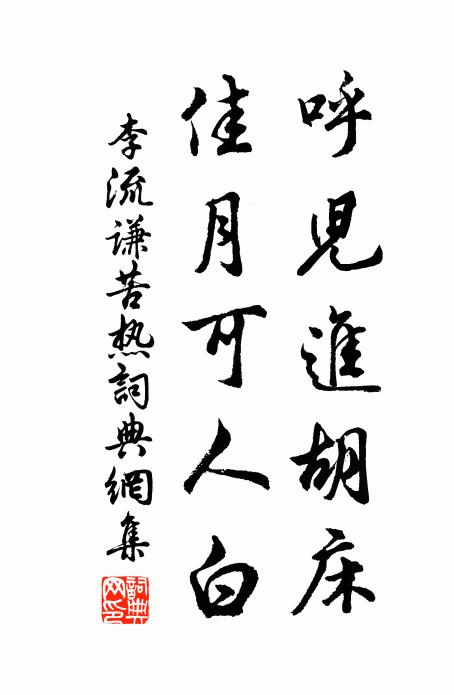 呼児進胡床
佳月可人白
李流謙苦热詞典網集
詞典网印